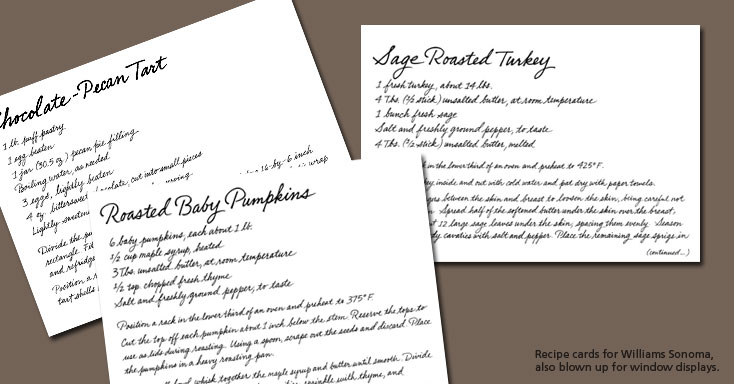 Chocolate-Pecan Tart
1 lb. puff pastry
1 egg beaten
1 jar (30.5 oz.) pecan pie filling
Boiling water, as needed
3 eggs, lightly beaten
4 oz. bittersweet chocolate, cut into small pieces
Lightly sweetened
16-by-6 inch
wrap
Divide the
rectangle.
and refridge
Position a
tart shells
Roasted Baby Pumpkins
6 baby pumpkins, each about 1 lb.
1/2 cup maple syrup, heated
3 Tbs. unsalted butter, at room temperature
1/2 tsp. chopped fresh thyme
Salt and freshly ground pepper, to taste
Position a rack in the lower third of an oven and preheat to 375°F.
Cut the top off each pumpkin about 1 inch below the stem. Reserve the tops to
use as lids during roasting. Using a spoon, scrape out the seeds and discard. Place
the pumpkins in a heavy roasting pan.
whisk together the maple syrup and butter until smooth. Divide
sprinkle with thyme, and
Sage Roasted Turkey
1 fresh turkey, about 14 lbs.
4 Tbs. (1/2 stick) unsalted butter, at room temperature
1 bunch fresh sage
Salt and freshly ground pepper, to taste
4 Tbs. (1/2 stick) unsalted butter, melted
in the lower third of an oven and preheat to 425°F.
inside and out with cold water and pat dry with paper towels.
between the skin and breast to loosen the skin, being careful not
Spread half of the softened butter under the skin over the breast,
12 large sage leaves under the skin, spacing them evenly. Season
cavities with salt and pepper. Place the remaining sage sprigs in
(continued...)
Recipe cards for Williams Sonoma,
also blown up for window displays.